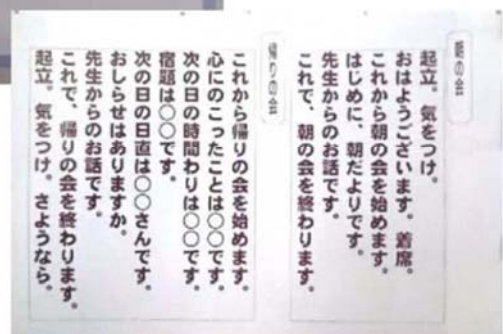 朝の会
起立。気をつけ。
おはようございます。着席。
これから朝の会を始めます。
はじめに、朝だよりです。
先生からのお話です。
これで、朝の会を終わります。
帰りの会
これから帰りの会を始めます。
心にのこったことは〇〇です。
次の日の時間わりは〇〇です。
宿題は〇〇です。
次の日の日直は〇〇さんです。
おしらせはありますか。
先生からのお話です。
これで、帰りの会を終わります。
起立。気をつけ。さようなら。